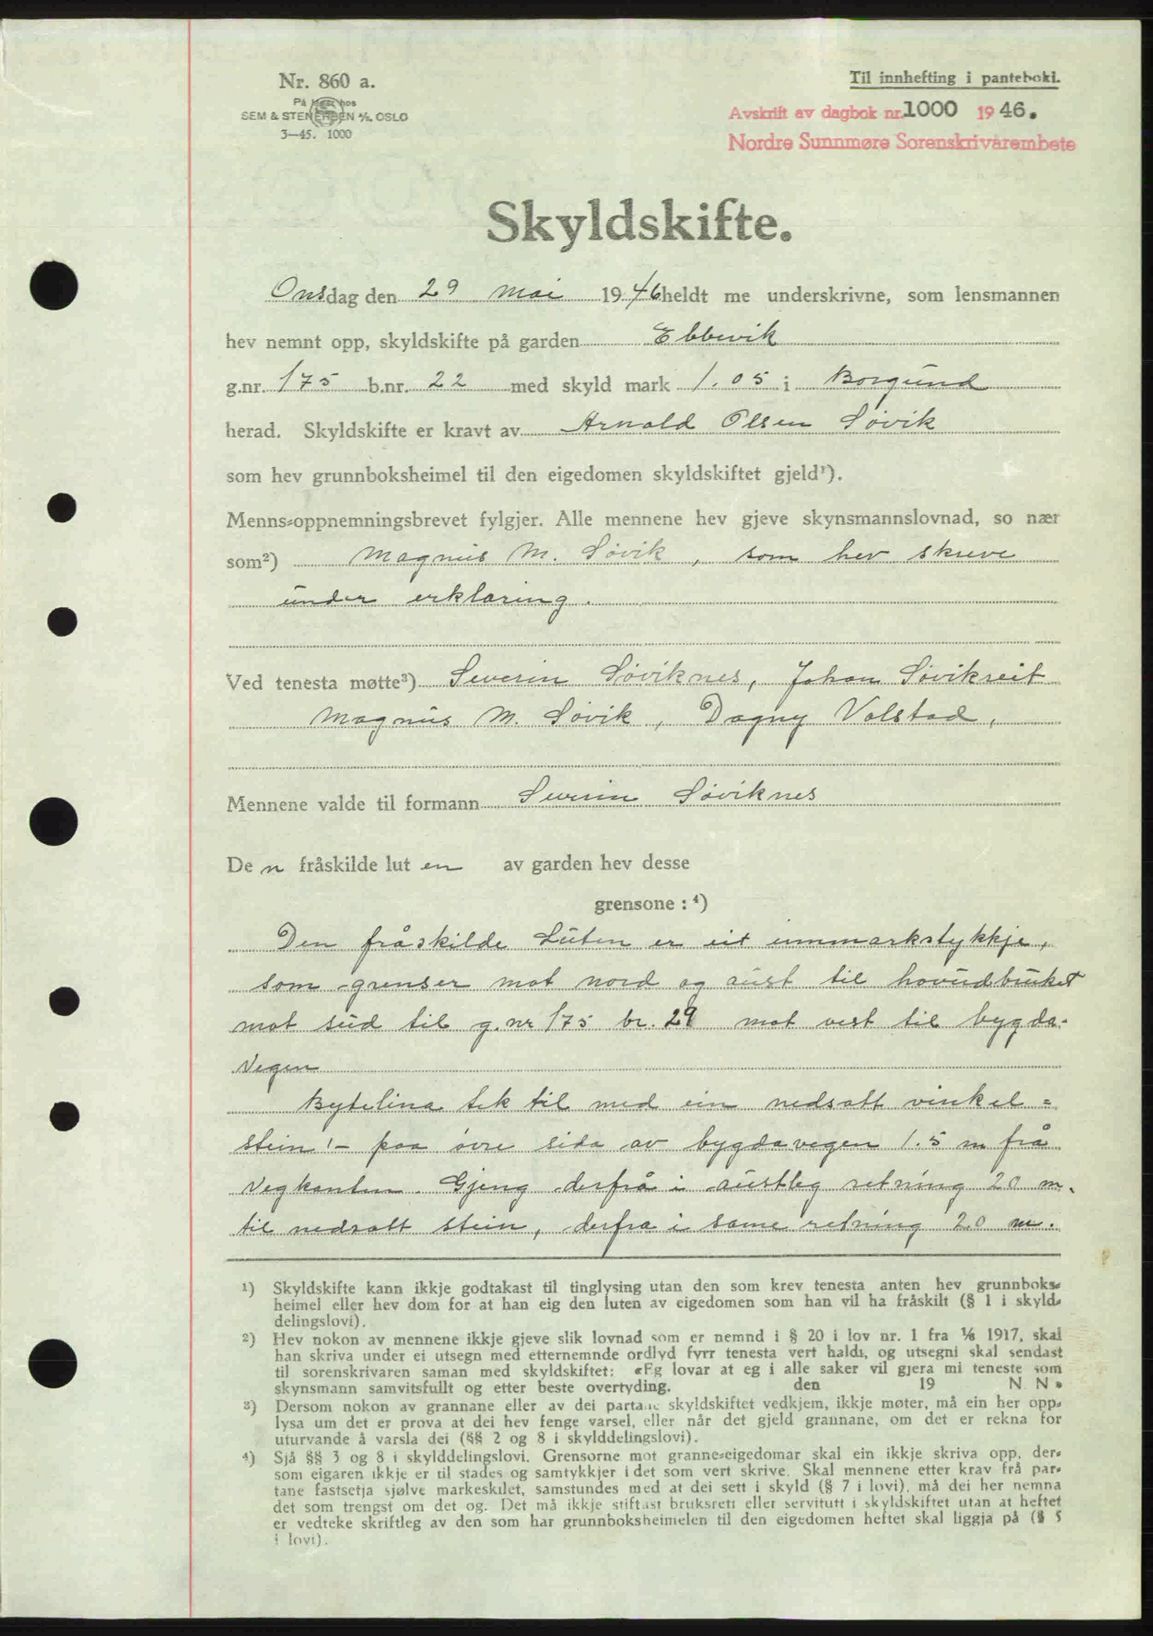 Nr. 860 a.
På lager hos
SEM & STENERSEN A/S. OSLO
3—45. 1000
Til innhefting i panteboki.
Avskrift av dagbok nr. 1000 1946.
Nordre Sunnmøre Sorenskrivarembete
Skyldskifte.
Onsdag den 29 mai 1946 heldt me underskrivne, som lensmannen
hev nemnt opp, skyldskifte på garden Ebbevik
g.nr. 175 b.nr. 22 med skyld mark 1.05 i Borgund
herad. Skyldskifte er kravt av Arnold Olsen Søvik
som hev grunnboksheimel til den eigedomen skyldskiftet gjeld¹).
Menns-oppnemningsbrevet fylgjer. Alle mennene hev gjeve skynsmannslovnad, so nær
som²) Magnus M. Søvik, som hev skreve
under erklæring.
Ved tenesta møtte³) Severin Søviknes, Johan Søvikreit
Magnus M. Søvik, Dagny Valstad,
Mennene valde til formann Severin Søviknes
De n fråskilde lut en av garden hev desse
grensone : ⁴)
Den fråskilde Luten er eit innmarkstykkje,
som grenser mot nord og aust til hovudbruket
mot sud til g.nr 175 br. 29 mot vest til bygda-
vegen
Bytelina tek til med ein nedsatt vinkel =
stein ⁱ- paa øvre sida av bygdavegen 1.5 m frå
vegkanten. Gjeng derfrå i austleg retning 20 m.
til nedsatt stein, derfra i same retning 20 m.
¹) Skyldskifte kann ikkje godtakast til tinglysing utan den som krev tenesta anten hev grunnboks-
heimel eller hev dom for at han eig den luten av eigedomen som han vil ha fråskilt (§ 1 i skyld-
delingslovi).
²) Hev nokon av mennene ikkje gjeve slik lovnad som er nemnd i § 20 i lov nr. 1 fra 1/6 1917, skal
han skriva under ei utsegn med etternemnde ordlyd fyrr tenesta vert haldi, og utsegni skal sendast
til sorenskrivaren saman med skyldskiftet: «Eg lovar at eg i alle saker vil gjera mi teneste som
skynsmann samvitsfullt og etter beste overtyding. den 19 N. N.»
³) Dersom nokon av grannane eller av dei partane skyldskiftet vedkjem, ikkje møter, må ein her opp-
lysa um det er prova at dei hev fenge varsel, eller når det gjeld grannane, om det er rekna for
uturvande å varsla dei (§§ 2 og 8 i skylddelingslovi).
⁴) Sjå §§ 3 og 8 i skylddelingslovi. Grensorne mot granne-eigedomar skal ein ikkje skriva opp, der-
som eigaren ikkje er til stades og samtykkjer i det som vert skrive. Skal mennene etter krav frå par-
tane fastsetja sjølve markeskilet, samstundes med at dei sett i skyld (§ 7 i lovi), må dei her nemna
det som trengst om det og. Det må ikkje stiftast bruksrett eller servitutt i skyldskiftet utan at heftet
er vedteke skriftleg av den som har grunnboksheimelen til den eigedomen heftet skal liggja på (§ 5
i lovi).